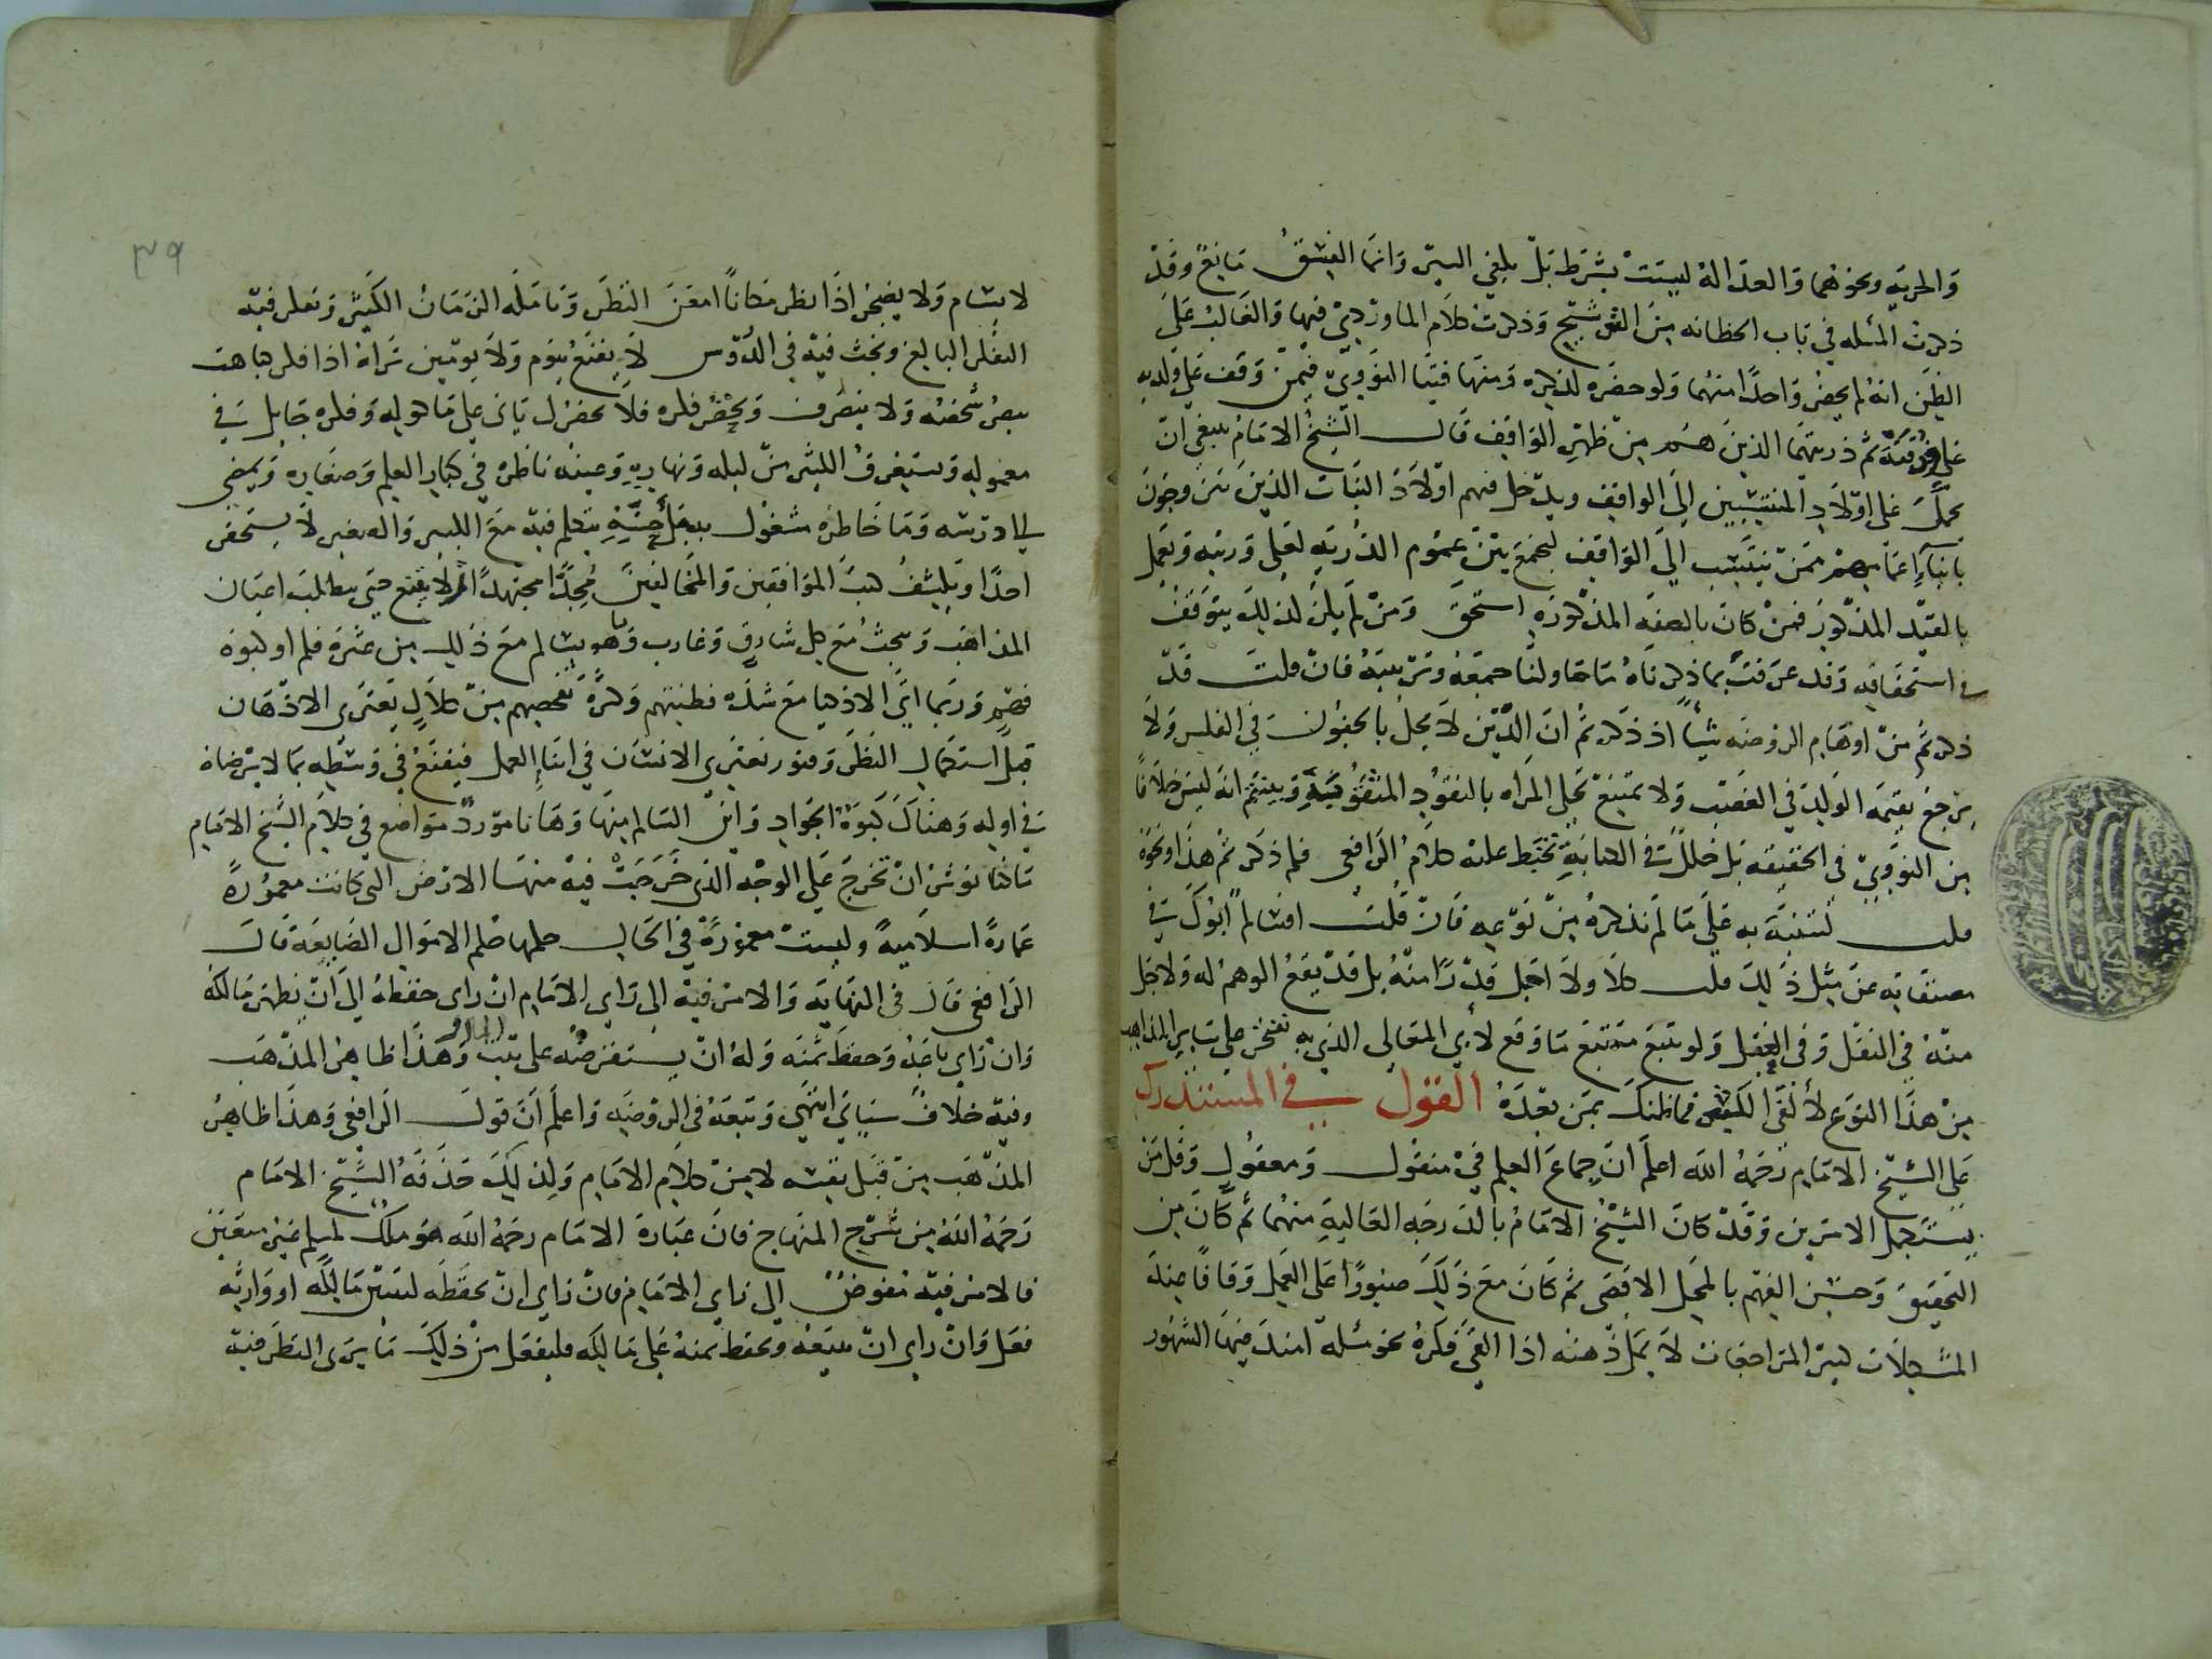 والحريه ونحوهما والعداله ليست بشرط بل يكفي الستر وانما الفسق مانع وقد
ذكرت المسله في باب الحضانه من التوشيح وذكرت كلام الماوردي فيها والغالب على
الظن انه لم يحضر واحدا منهما ولو حضره لذكره ومنها فتيا النووي فيمن وقف على ولديه
ثم ذريتهما الذين هم من ظهر الواقف قال الشيخ الامام ينبغي ان
يحمل على اولاد المنتسبين الى الواقف ويدخل فيهم اولاد البنات الذين يتزوجون
بابناء اعمامهم ممن ينتسب الى الواقف ليجمع بين عموم الذريه لعلي وذريته ويعمل
بالقيد المذكور فمن كان بالصفه المذكوره استحق ومن لم يكن لذلك يتوقف
في استحقاقه وقد عرفت بما ذكرناه ما حاولنا جمعه وترتيبه فان قلت قد
ذكر ثم من اوهام الروضه شيئا اذ ذكر ثم ان الدين لا يحل بالجنون في الفلس ولا
يرجع بقيمه الولد في الغصب ولا تمتنع تحلي المراه بالنقود المثقوبة وبين ثم انه ليس خلافا
من النووي في الحقيقه بل خللا في الكتابة تخبط عليه كلام الرافعي فلم ذكر ثم هذا ونحوه
قلت لتتنبه به على ما لم نذكره من نوعه فان قلت افسالم ابوك في
مصنفاته عن مثل ذلك قلت كلا ولا اجل قدرا منه بل قد يقع الوهم له ولاجل
منه في النقل وفي العقل ولو تتبع متتبع ما وقع لابي المعالي الذي به نفتخر على ساير المذاهب
من هذا النوع لألفى الكثير فما ظنك بمن بعده القول في المستدرك
على الشيخ الامام رحمه الله اعلم ان جماع العلم في منقول ومعقول وقل من
يستكمل الامرين وقد كان الشيخ الامام بالدرجه العالية منهما ثم كان من
التحقيق وحسن الفهم بالمحل الاقصى ثم كان مع ذلك صبورا على العمل وقافا عند
المشكلات كثير المراجعات لا يمل ذهنه اذا القى فكره نحو مسله امتد فيها الشهور
٣٩
لا يسام ولا يضجر اذا نظر مكانا امعن النظر وتامله الزمان الكثير وتفكر فيه
الفكر البالغ وبحث فيه في الدروس لا يقنع بيوم ولا يومين تراه اذا فكر باهت
يبصر شخصه ولا ينصرف ويحضر فكره فلا يحضر ل ياتي على ماكوله وفكره جايل في
معموله ويستغرق الكثير من ليله ونهاره وعينه ناظره في كبار العلم وصغاره ويمضي
الى درسه وما خاطره مشغول يتكلم فيه مع الكبير والصغير لا يستحقر
احدا ويكشف كتب الموافقين والمخالفين مجدا مجتهدا ثم لا يقنع حتى يطالب اعيان
المذاهب ويبحث مع كل شارق وغارب وما هو بسالم مع ذلك من عثرة قلم او كبوة
فهم وربما اتى الاذكيا مع شدة فطنتهم وكثرة تفحصهم من كلال يعتري الاذهان
قبل استكمال النظر وفتور يعتري الانسان في اثناء العمل فيقنع في وسطه بما لا يرضاه
في اوله وهناك كبوة الجواد واين السالم منها وها نا مورد مواضع في كلام الشيخ الامام
ما خلا يوشك ان تخرج على الوجه الذي خرجت فيه منها الارض التي كانت معمورة
عمارة اسلامية وليست معمورة في الحال حكمها حكم الاموال الضايعة قال
الرافعي قال في النهايه والامر فيه الى راي الامام ان راى حفظه الى ان يظهر مالكه
وان راى باعه وحفظ ثمنه وله ان يستقرضه على بيت المال وهذا ظاهر المذهب
وفيه خلاف سياتي انتهى وتبعه في الروضه واعلم ان قول الرافعي وهذا ظاهر
المذهب من قبل نفسه لا من كلام الامام ولذلك حذفه الشيخ الامام
رحمه الله من شرح المنهاج فان عبارة الامام رحمه الله هو ملك لمسلم غير متعين
فالامر فيه مفوض الى راي الامام فان راى ان يحفظه ليتبين مالكه او وارثه
فعل وان راى ان يبيعه ويحفظ ثمنه على مالكه فليفعل من ذلك ما يرى النظر فيه